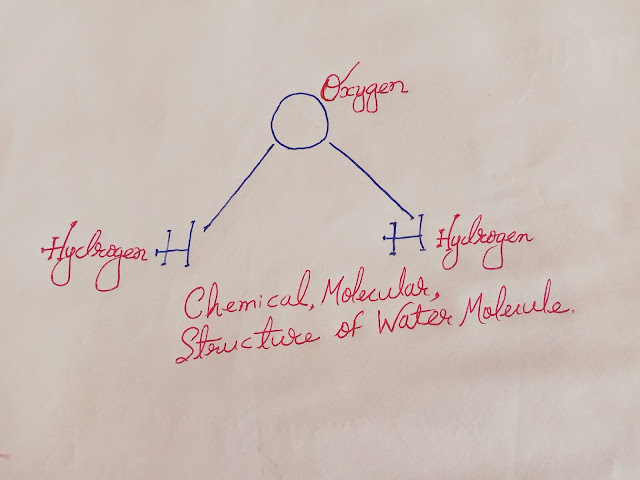 Oxygen
Hydrogen H
H Hydrogen
Chemical, Molecular,
Structure of Water Molecule.